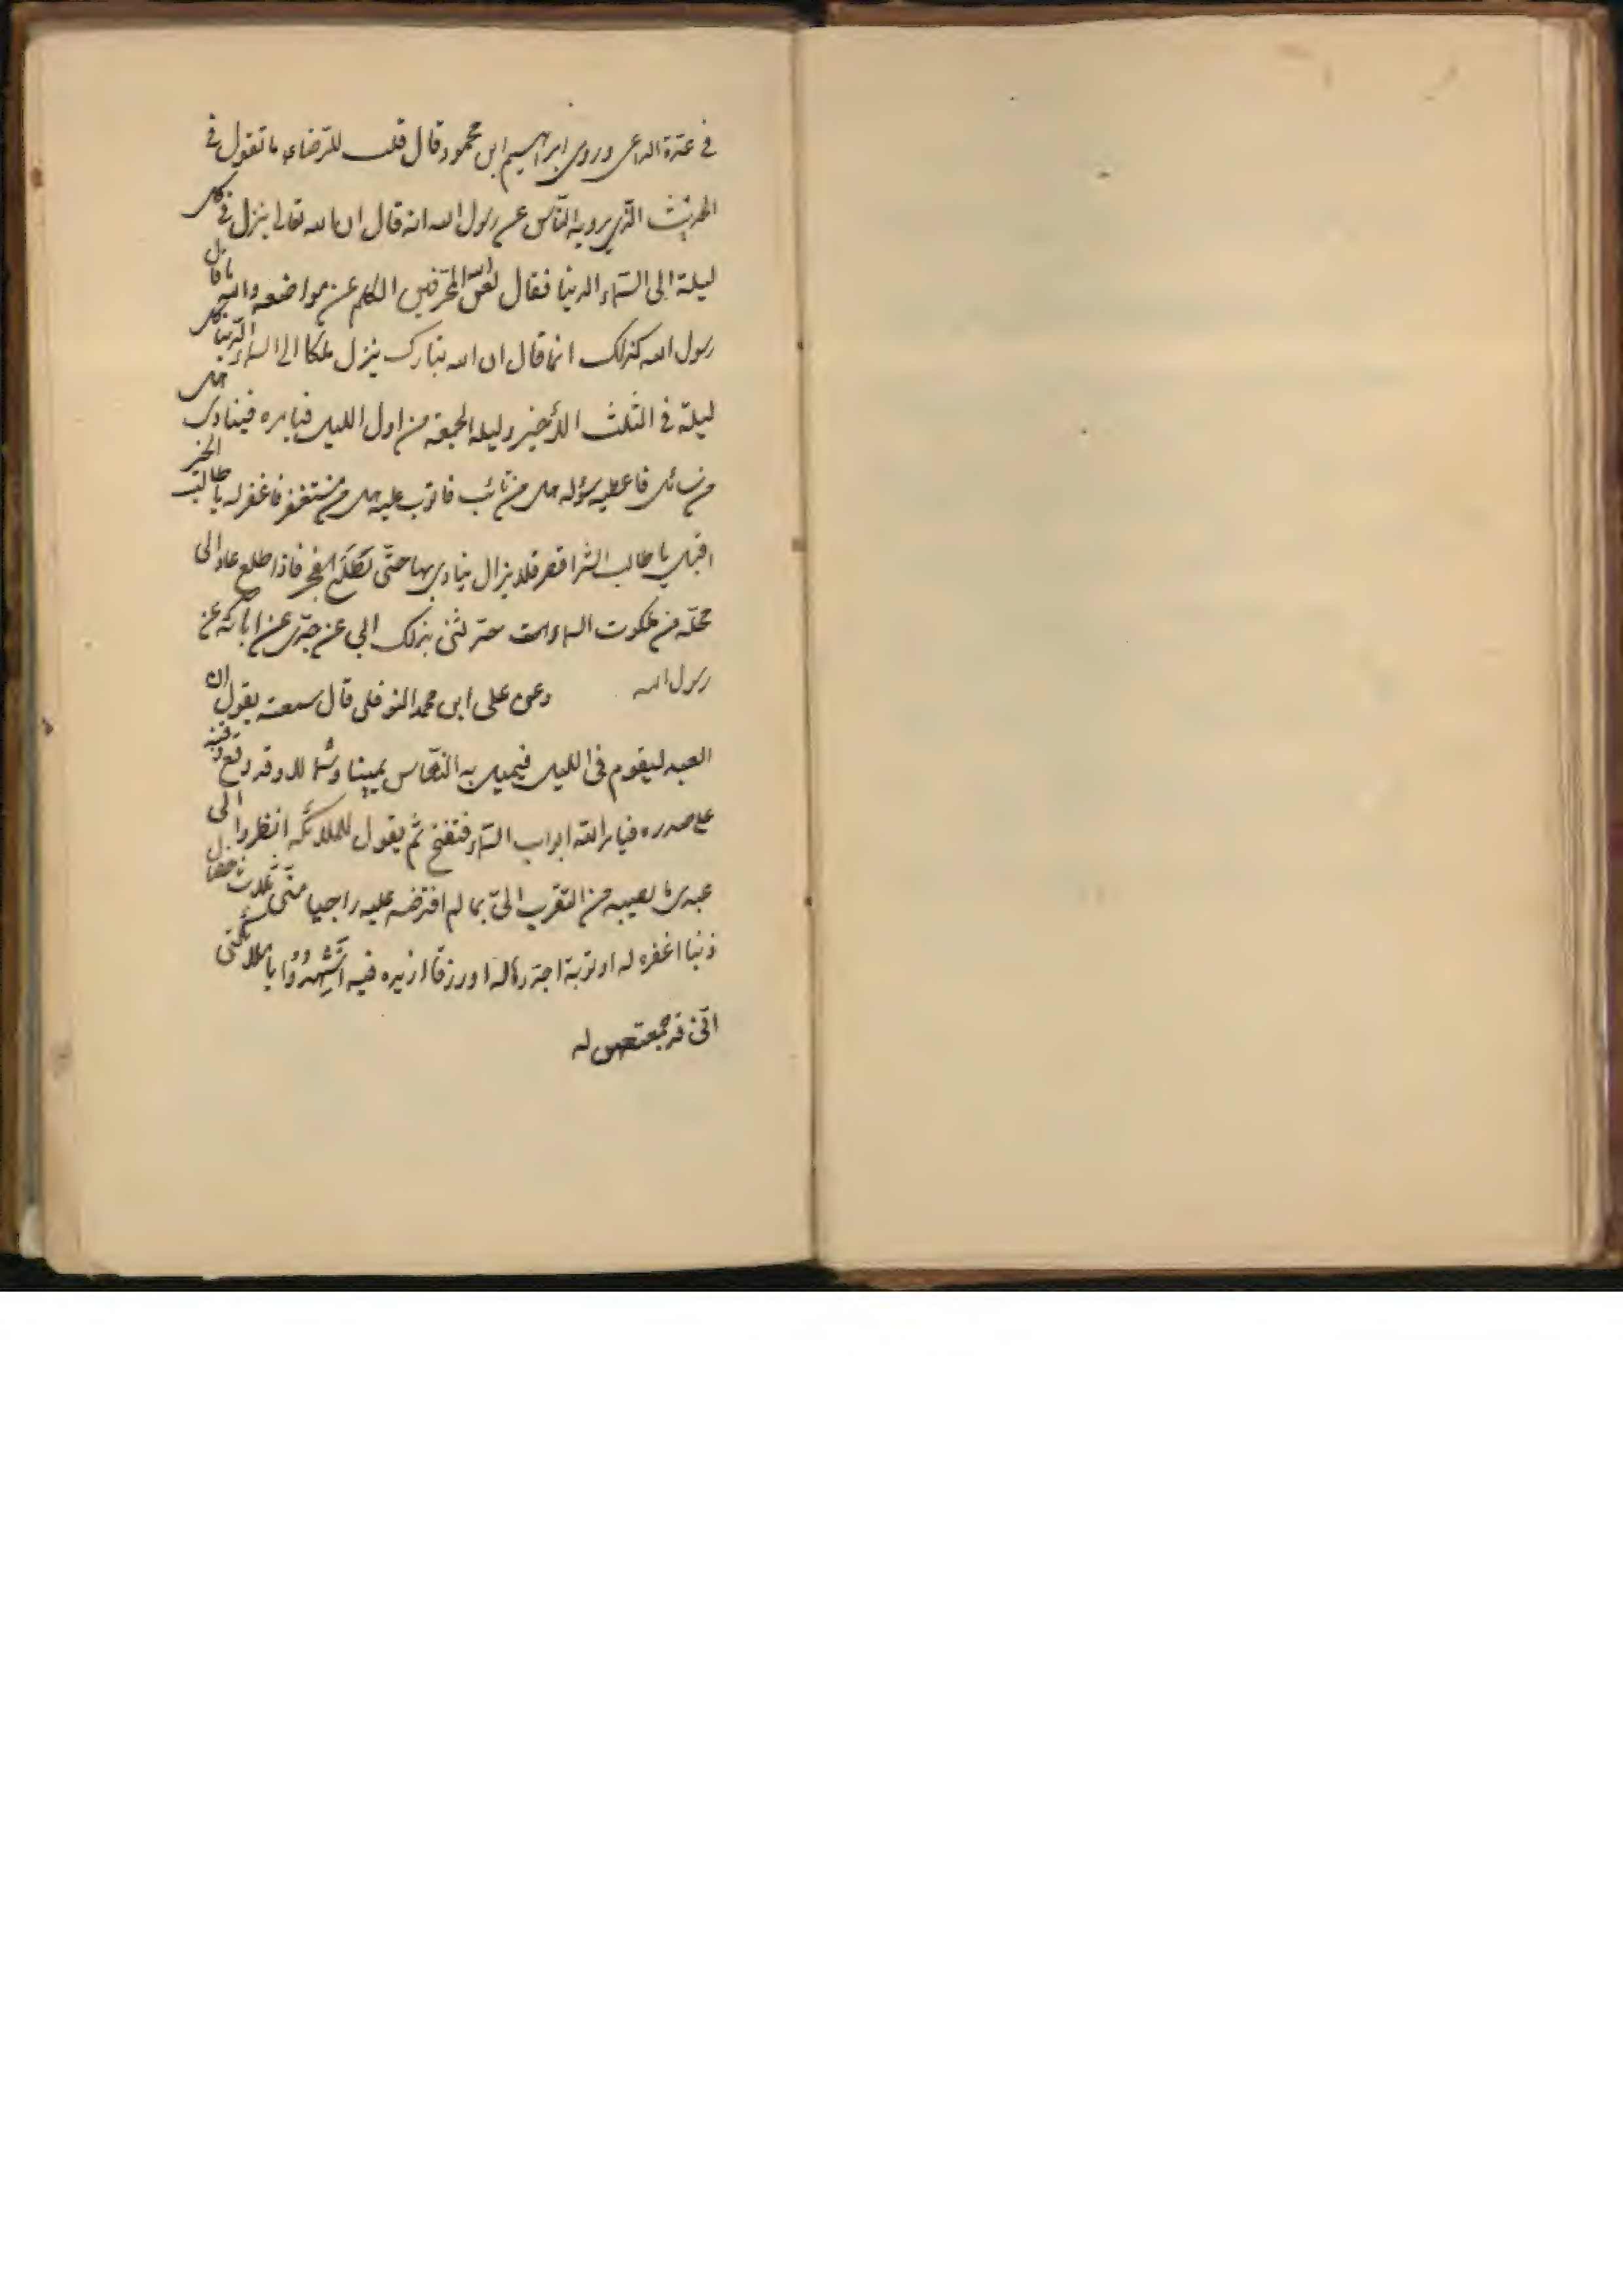 في عدة الداعي وروى ابراهيم ابن محمود قال قلت للرضاء ما تقول في
الحديث الذي يرويه الناس عن رسول الله انه قال ان الله تعالى ينزل في كل
ليلة الى السماء الدنيا فقال لعن الله المحرفين الكلم عن مواضعه والله ما قال
رسول الله كذلك انما قال ان الله تبارك ينزل ملكا الى السماء الدنيا كل
ليلة في الثلث الأخير وليلة الجمعة من اول الليل فيامره فينادى هل
من سائل فاعطيه سؤله هل من تائب فاتوب عليه هل من مستغفر فاغفر له يا طالب الخير
اقبل يا طالب الشر اقصر فلا يزال ينادي بها حتى تطلع الفجر فاذا طلع عاد الى
محله من ملكوت السماوات حدثنى بذلك ابي عن جدي عن ابائه عن
رسول الله وعن على ابن محمد النوفلى قال سمعته يقول ان
العبد ليقوم فى الليل فيميل به النعاس يمينا وشمالا وقد وقع ذقنه
على صدره فيامر الله ابواب السماء فتفتح ثم يقول للملائكة انظروا الى
عبدى ما يصيبه من التقرب الىّ بما لم افترضه عليه راجيا منّى ثلاث خصال
ذنبا اغفره له او توبة اجددها له او رزقا ازيده فيه اشهدوا يا ملائكتى
انّى قد جمعتهن له